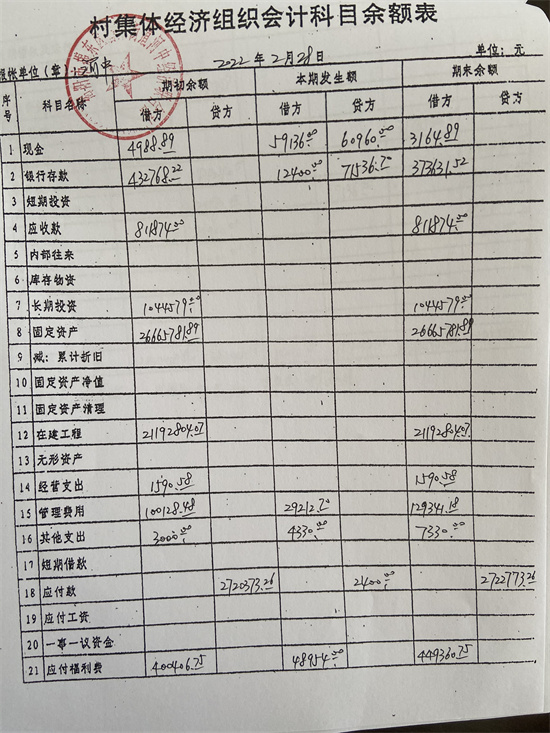 村集体经济组织会计科目余额表
填报单位（章）：河中 2022 年 2 月 28 日 单位：元
序号 科目名称 期初余额 本期发生额 期末余额
借方 贷方 借方 贷方 借方 贷方
1 现金 4988.89 59136.00 60960.00 3164.89
2 银行存款 432768.22 12400.00 71536.70 373631.52
3 短期投资
4 应收款 811874.00 811874.00
5 内部往来
6 库存物资
7 长期投资 1044579.00 1044579.00
8 固定资产 26665781.89 26665781.89
9 减：累计折旧
10 固定资产净值
11 固定资产清理
12 在建工程 21192804.07 21192804.07
13 无形资产
14 经营支出 1590.58 1590.58
15 管理费用 100128.48 29212.70 129341.18
16 其他支出 3000.00 4330.00 7330.00
17 短期借款
18 应付款 2720373.26 2400.00 2722773.26
19 应付工资
20 一事一议资金
21 应付福利费 400406.75 48954.00 449360.75